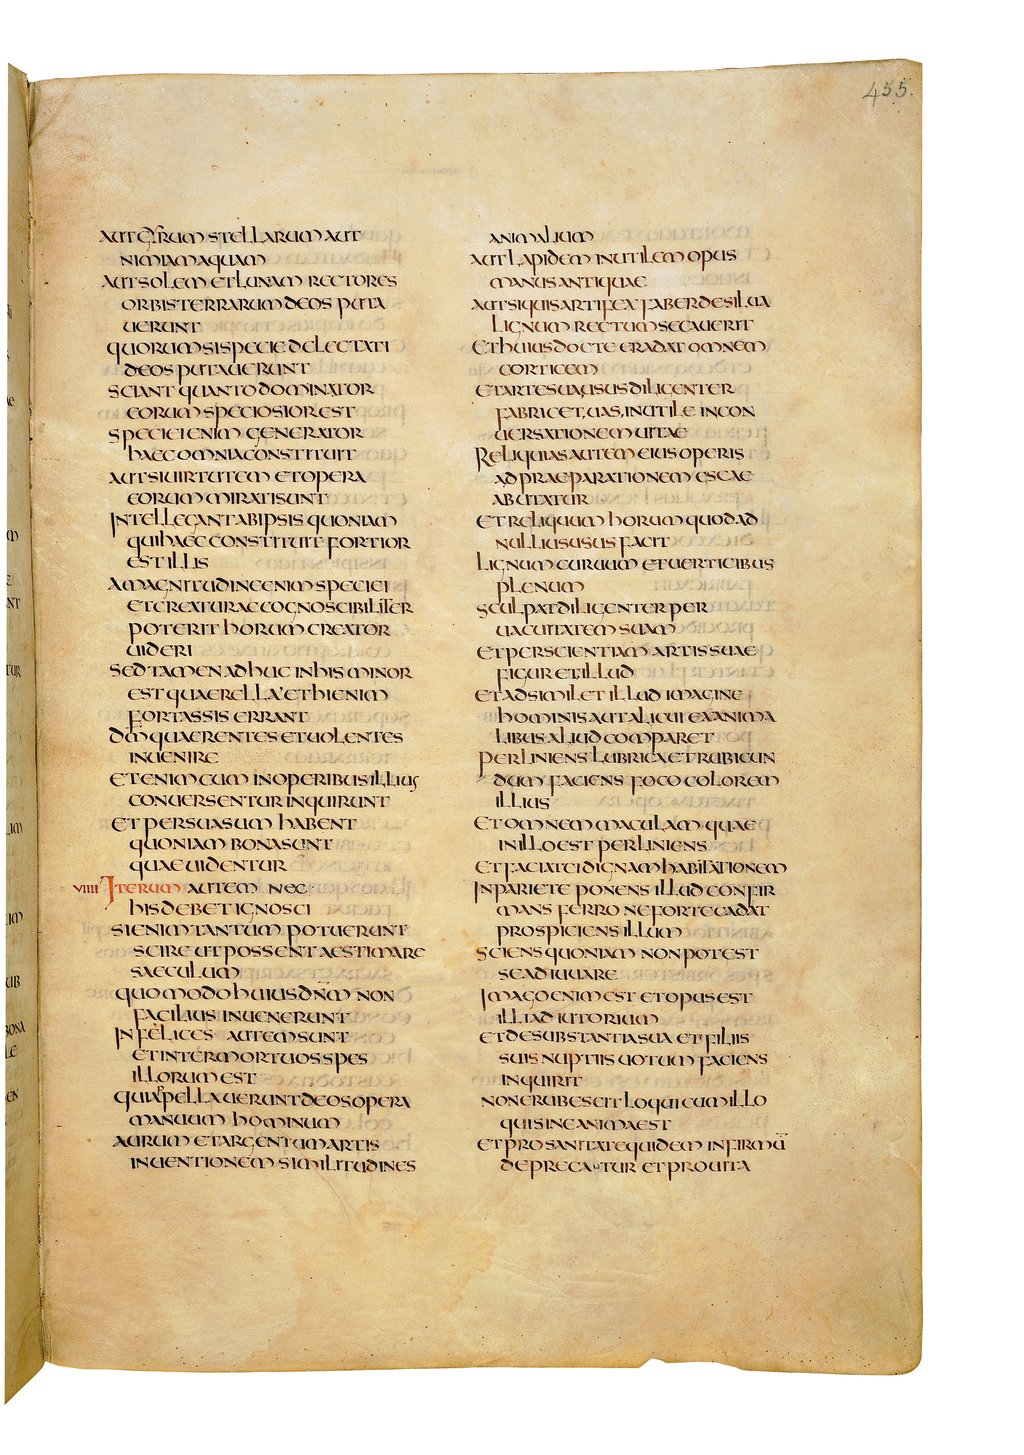 455.
AUT GYRUM STELLARUM AUT
NIMIAM AQUAM
AUT SOLEM ET LUNAM RECTORES
ORBIS TERRARUM DEOS PUTA
UERUNT
QUORUM SI SPECIE DELECTATI
DEOS PUTAUERUNT
SCIANT QUANTO DOMINATOR
EORUM SPECIOSIOR EST
SPECIEI ENIM GENERATOR
HAEC OMNIA CONSTITUIT
AUT SI UIRTUTEM ET OPERA
EORUM MIRATI SUNT
INTELLEGANT AB IPSIS QUONIAM
QUI HAEC CONSTITUIT FORTIOR
EST ILLIS
A MAGNITUDINE ENIM SPECIEI
ET CREATURAE COGNOSCIBILITER
POTERIT HORUM CREATOR
UIDERI
SED TAMEN ADHUC IN HIS MINOR
EST QUAERELLA ET HI ENIM
FORTASSIS ERRANT
DM QUAERENTES ET UOLENTES
INUENIRE
ETENIM CUM IN OPERIBUS ILLIUS
CONUERSENTUR INQUIRUNT
ET PERSUASUM HABENT
QUONIAM BONA SUNT
QUAE UIDENTUR
VIIII ITERUM AUTEM NEC
HIS DEBET IGNOSCI
SI ENIM TANTUM POTUERUNT
SCIRE UT POSSENT AESTIMARE
SAECULUM
QUOMODO HUIUS DNM NON
FACILIUS INUENERUNT
INFELICES AUTEM SUNT
ET INTER MORTUOS SPES
ILLORUM EST
QUI APPELLAUERUNT DEOS OPERA
MANUUM HOMINUM
AURUM ET ARGENTUM ARTIS
INUENTIONEM SIMILITUDINES
ANIMALIUM
AUT LAPIDEM INUTILEM OPUS
MANUS ANTIQUAE
AUT SI QUIS ARTIFEX FABER DE SILUA
LIGNUM RECTUM SECAUERIT
ET HUIUS DOCTE ERADAT OMNEM
CORTICEM
ET ARTE SUA USUS DILIGENTER
FABRICET UAS INUTILE IN CON
UERSATIONEM UITAE
RELIQUIAS AUTEM EIUS OPERIS
AD PRAEPARATIONEM ESCAE
ABUTATUR
ET RELIQUUM HORUM QUOD AD
NULLIUS USUS FACIT
LIGNUM CURUUM ET UERTICIBUS
PLENUM
SCULPAT DILIGENTER PER
UACUITATEM SUAM
ET PER SCIENTIAM ARTIS SUAE
FIGURET ILLUD
ET ADSIMILET ILLUD IMAGINE
HOMINIS AUT ALICUI EX ANIMA
LIBUS ALIUD COMPARET
PERLINIENS LUBRICA ET RUBICUN
DUM FACIENS FOCO COLOREM
ILLIUS
ET OMNEM MACULAM QUAE
IN ILLO EST PERLINIENS
ET FACIAT EI DIGNAM HABITATIONEM
IN PARIETE PONENS ILLUD CONFIR
MANS FERRO NE FORTE CADAT
PROSPICIENS ILLUM
SCIENS QUONIAM NON POTEST
SE ADIUUARE
IMAGO ENIM EST ET OPUS EST
ILLI ADIUTORIUM
ET DE SUBSTANTIA SUA ET FILIIS
SUIS NUPTIIS UOTUM FACIENS
INQUIRIT
NON ERUBESCIT LOQUI CUM ILLO
QUI SINE ANIMA EST
ET PRO SANITATE QUIDEM INFIRMŪ
DEPRECATUR ET PRO UITA